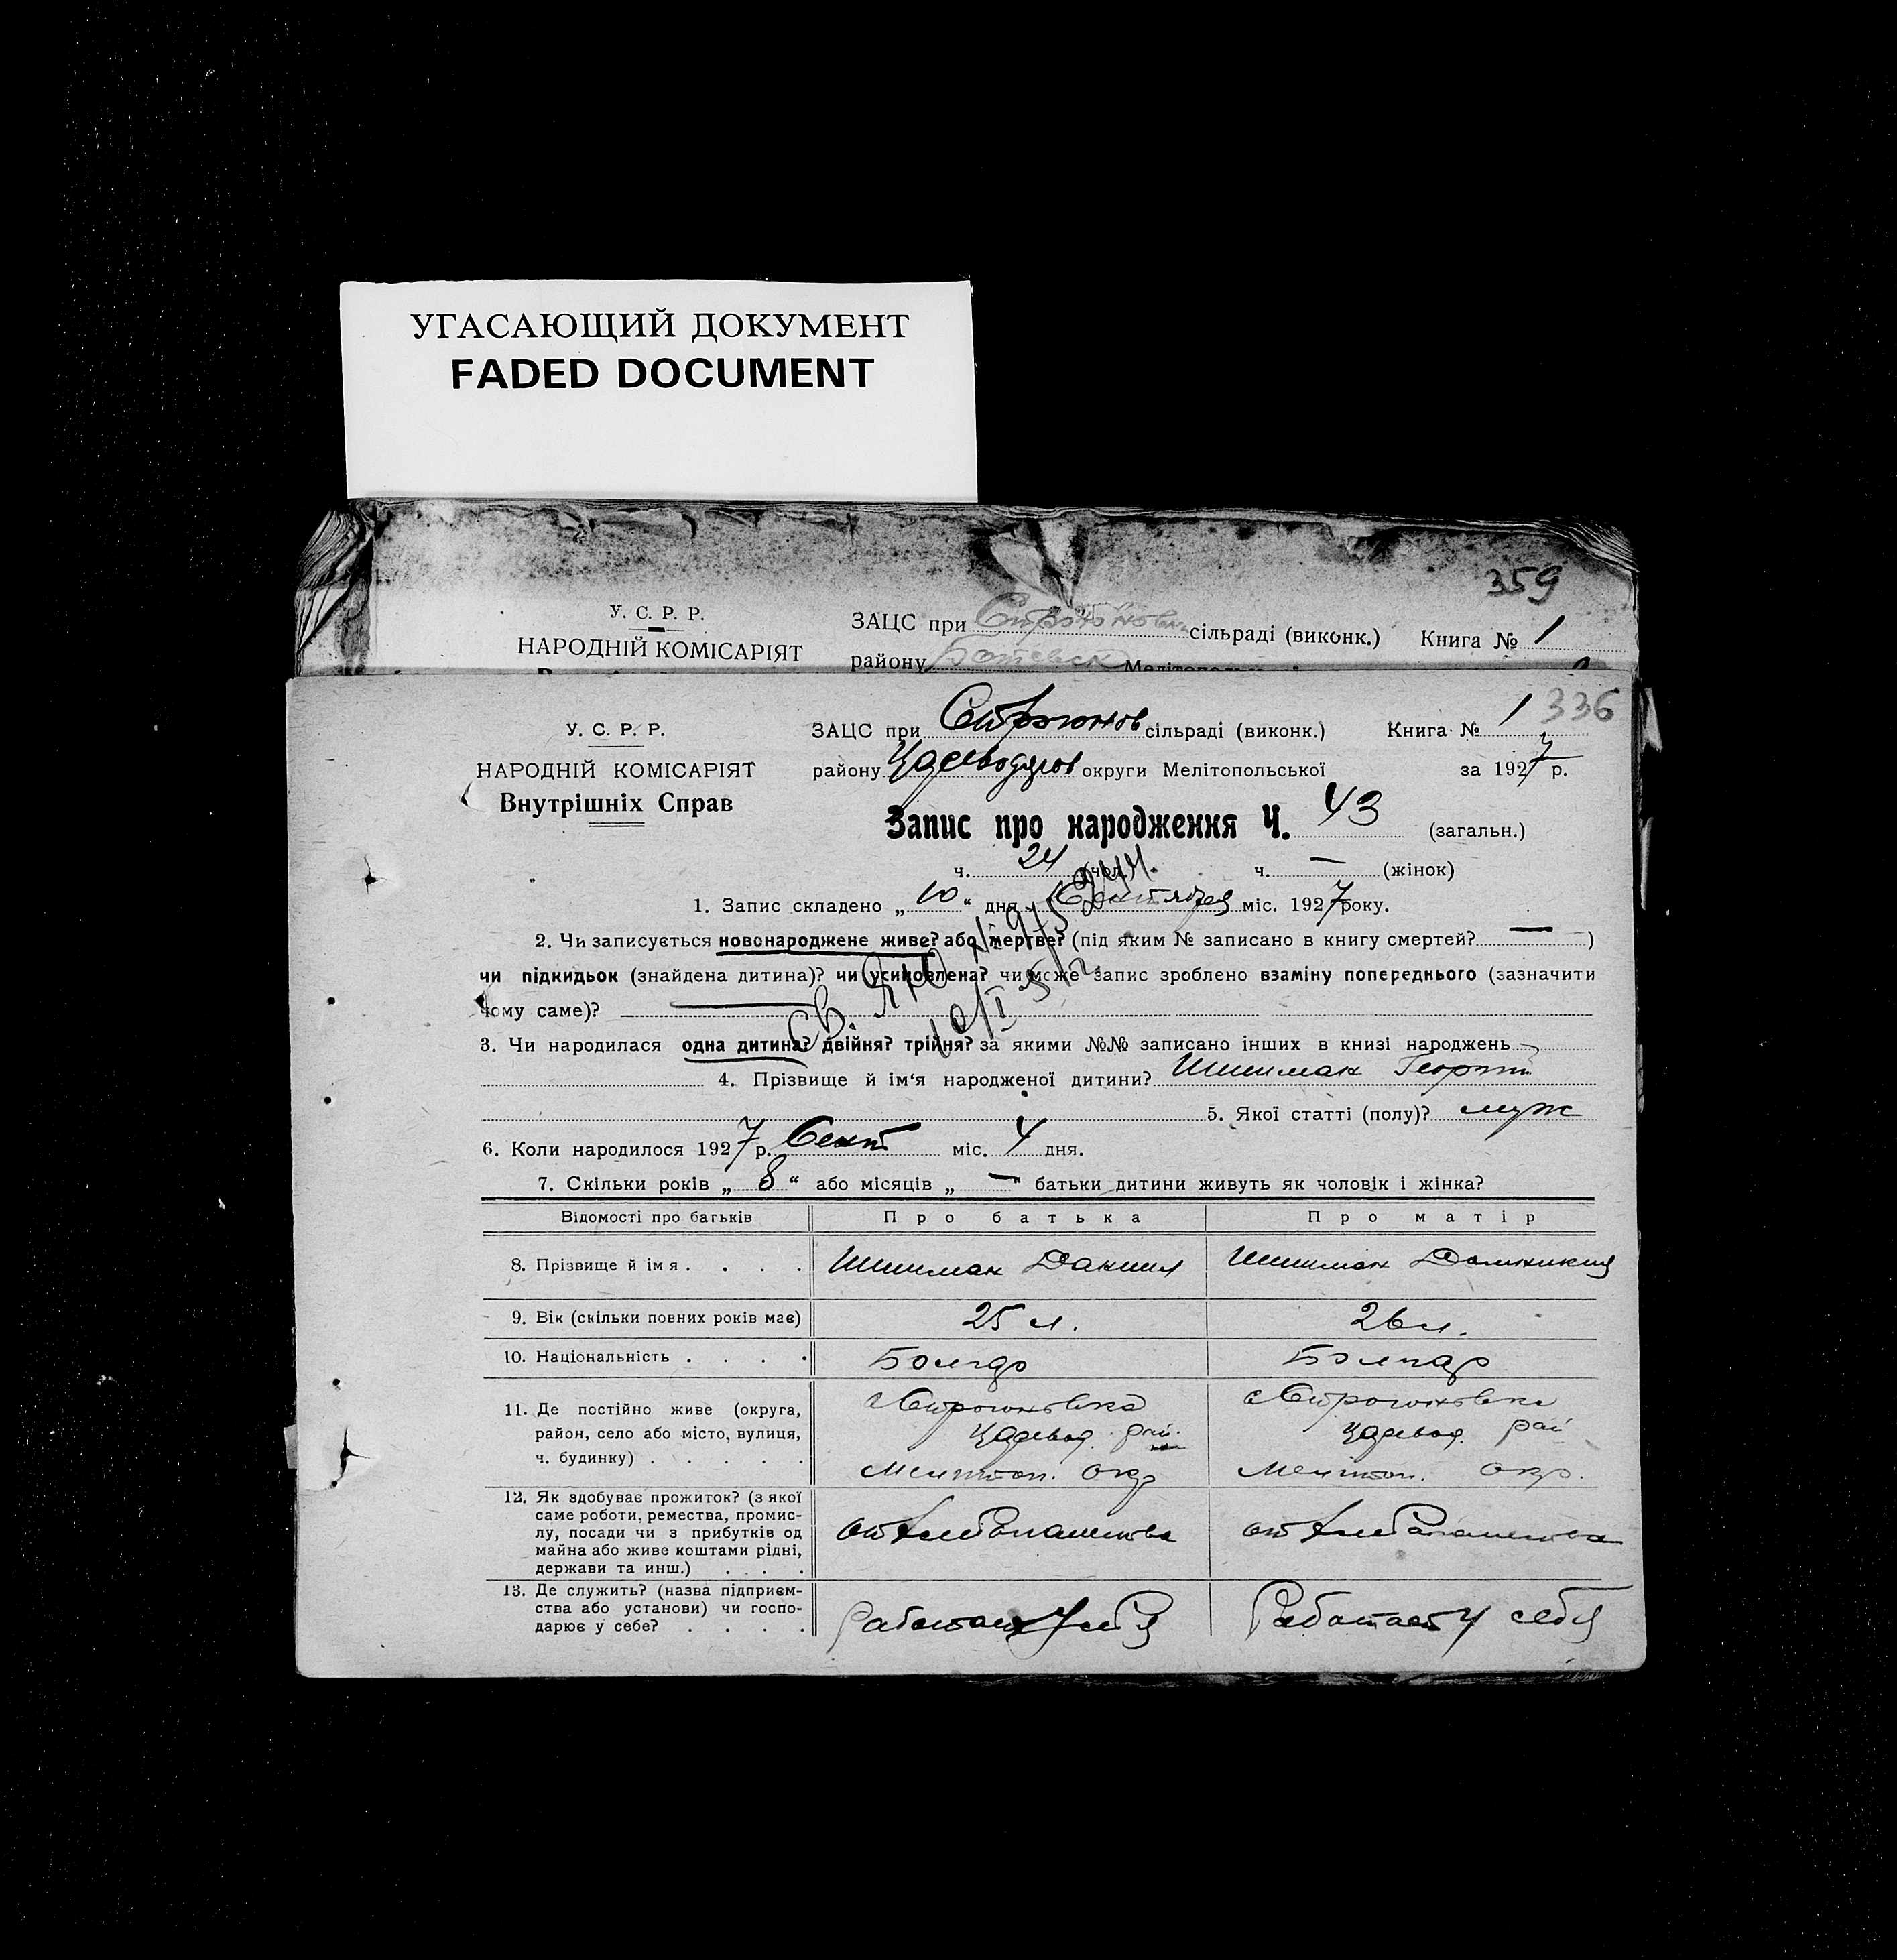 УГАСАЮЩИЙ ДОКУМЕНТ
FADED DOCUMENT
359
У. С. Р. Р.
ЗАЦС при Строгоновск сільраді (виконк.) Книга № 1
НАРОДНІЙ КОМІСАРІЯТ
району Ботевск
336
У. С. Р. Р.
ЗАЦС при Строгонов сільраді (виконк.) Книга № 1
НАРОДНІЙ КОМІСАРІЯТ
району Цареводаров округи Мелітопольської за 1927 р.
Внутрішніх Справ
Запис про народження Ч. 43 (загальн.)
ч. 24 (чол.) ч. — (жінок)
1. Запис складено „10“ дня Сентября міс. 1927 року.
2. Чи записується новонароджене живе? або мертве? (під яким № записано в книгу смертей? — )
чи підкидьок (знайдена дитина)? чи усиновлена? чи може запис зроблено взаміну попереднього (зазначити
чому саме)?
3. Чи народилася одна дитина? двійня? трійня? за якими №№ записано інших в книзі народжень
4. Прізвище й ім‘я народженої дитини? Шишман Георгий
5. Якої статті (полу)? муж
6. Коли народилося 1927 р. Сент міс. 4 дня.
7. Скільки років „ 8 “ або місяців „ — “ батьки дитини живуть як чоловік і жінка?
Відомості про батьків Про батька Про матір
8. Прізвище й імя . . . . Шишман Даниил Шишман Домникия
9. Вік (скільки повних років має) 25 л. 26 л.
10. Національність . . . . Болгар Болгар
11. Де постійно живе (округа,
район, село або місто, вулиця,
ч. будинку) . . . . .
с Строгоновка
Царевод. рай.
Мелитоп. окр
с Строгоновка
Царевод. рай
Мелитоп. окр.
12. Як здобуває прожиток? (з якої
саме роботи, ремества, промис-
лу, посади чи з прибутків од
майна або живе коштами рідні,
держави та инш.) . . . .
от хлебопашества
от хлебопашества
13. Де служить? (назва підприєм-
ства або установи) чи госпо-
дарює у себе? . . . .
Работает у себя
Работает у себя